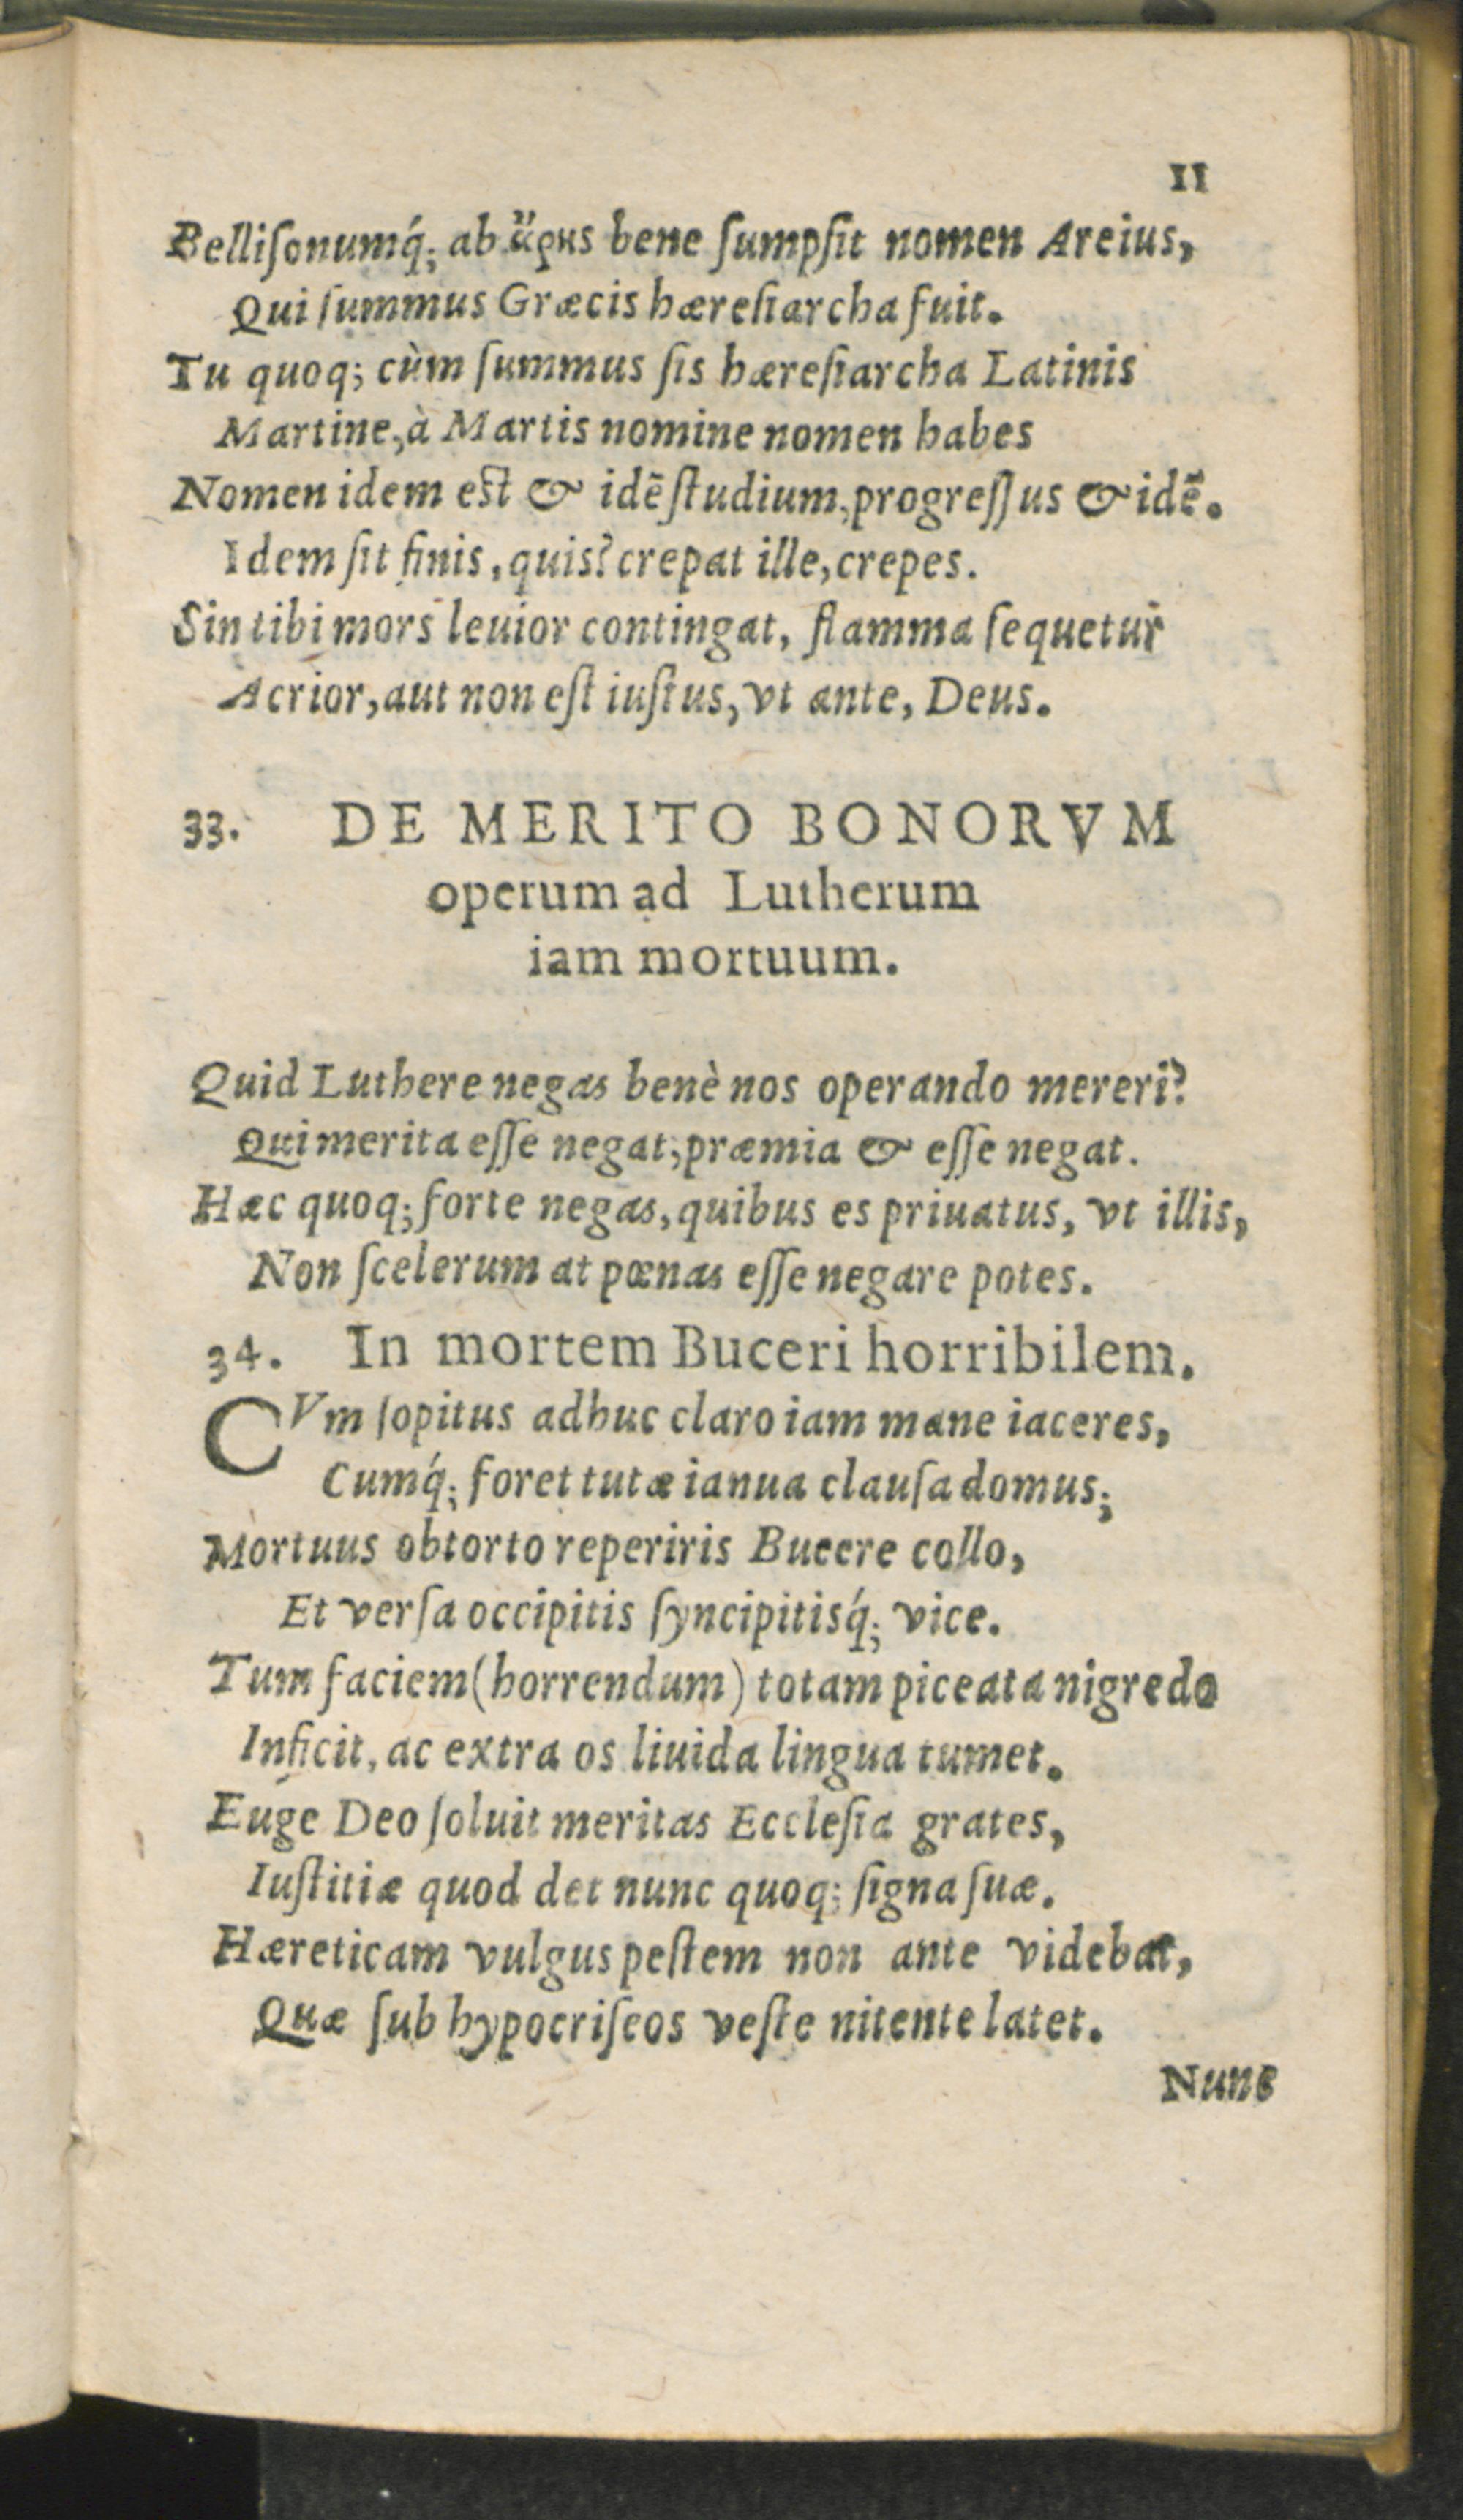 11
Belliſonumq́; ab ἄρης bene ſumpſit nomen Areius,
Qui ſummus Græcis hæreſiarcha fuit.
Tu quoq; cùm ſummus ſis hæreſiarcha Latinis
Martine, à Martis nomine nomen habes
Nomen idem eſt & idē ſtudium, progreſſus & idē.
Idem ſit finis, quis? crepat ille, crepes.
Sin tibi mors leuior contingat, flamma ſequetur
Acrior, aut non eſt iuſtus, vt ante, Deus.
33. DE MERITO BONORVM
operum ad Lutherum
iam mortuum.
Quid Luthere negas benè nos operando mereri?
Qui merita eſſe negat, præmia & eſſe negat.
Hæc quoq; forte negas, quibus es priuatus, vt illis,
Non ſcelerum at pœnas eſſe negare potes.
34. In mortem Buceri horribilem.
CVm ſopitus adhuc claro iam mane iaceres,
Cumq́; foret tutæ ianua clauſa domus;
Mortuus obtorto reperiris Bucere collo,
Et verſa occipitis ſyncipitisq́; vice.
Tum faciem (horrendum) totam piceata nigredo
Inficit, ac extra os liuida lingua tumet.
Euge Deo ſoluit meritas Eccleſia grates,
Iuſtitiæ quod det nunc quoq; ſigna ſuæ.
Hæreticam vulgus peſtem non ante videbat,
Quæ ſub hypocriſeos veſte nitente latet.
Nunc